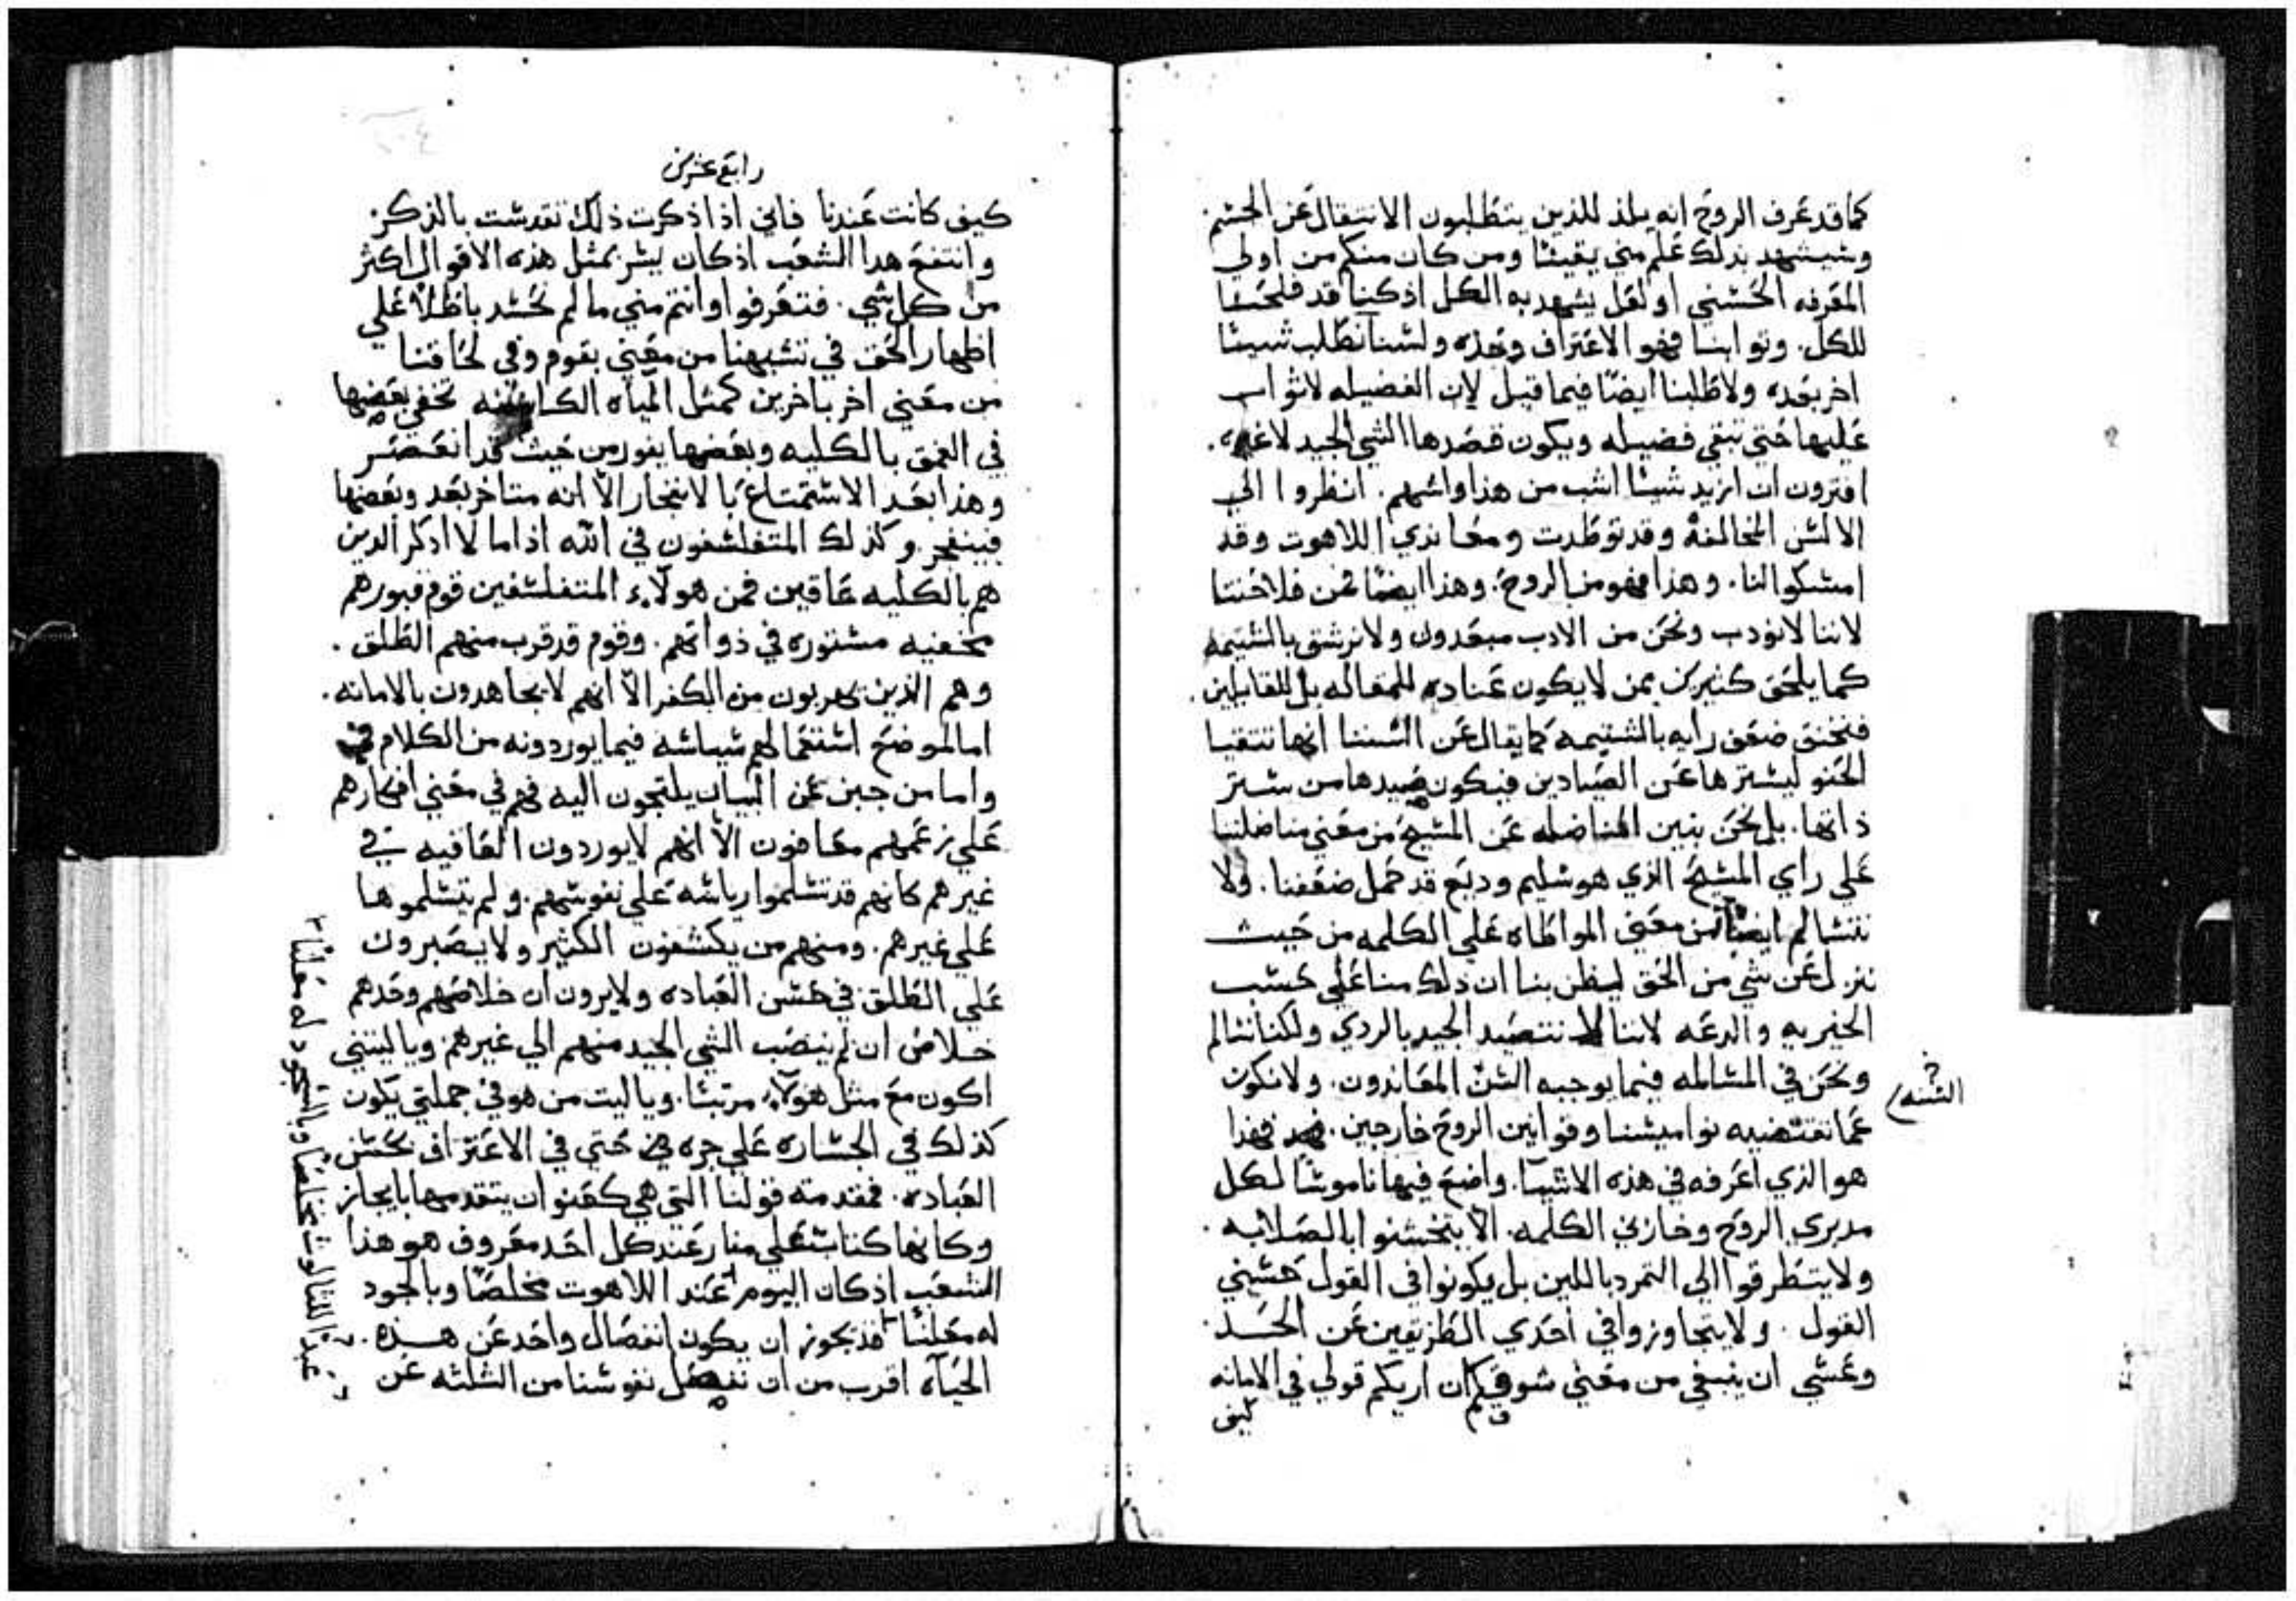 كما قد عَرف الروح انه يلذ للذين يتطلبون الانتقال عَن الجسم
وسيشهد بذلك عَلم مني يقينًا ومن كان منكم من اولي
المعَرفه الحَسني او لعَل يشهد به الكل اذ كنا قد فلحَنا
للكل. وثوابنا فهو الاعَتراف وحَده ولسنا نطلب شيئًا
اخر بعَده ولا طلبنا ايضًا فيما قبل لان الفضيله لا ثواب
عَليها حَتي تبقي فضيله ويكون قصدها الشي الجيد لا غير.
افترون ان ازيد شيئا اشب من هذا واشهم. انظروا الي
الالسن المخالفة وقد توطدت ومعَاندي اللاهوت وقد
امسكوا لنا. وهذا فهو من الروح. وهذا ايضًا فمن فلاحَتنا
لاننا لا نودب ونحَن من الادب مبعَدون ولا نرشق بالشتيمه
كما يلحَق كثيرين ممن لا يكون عَناده للمقاله بل للقايلين.
فنخنق ضعَف رايه بالشتيمه كما يقال عَن السبننا انها تتقيا
الحَنو ليسترها عَن الصيادين فيكون صيدها من ستر
ذاتها. بل نحَن نبين المناضله عَن المسيح من معَني مناضلتنا
عَلي راي المسيح الذي هو سليم وديع قد حَمل ضعَفنا. ولا
نتسالم ايضًا من معَني المواطاه عَلي الكلمه من حَيث
ننزل عَن شي من الحَق ليظن بنا ان ذلك منا عَلي حَسب
الخيريه والدعَه لاننا لا نتصيد الجيد بالردي ولكنا نسالم
ونحَن في المسالمه فيما يوجبه السنن المعَاندون. ولا نكون
السنه
عَما تقتضيه نواميسنا وقوانين الروح خارجين. فهذا
هو الذي اعَرفه في هذه الاشيا. واضع فيها ناموسًا لكل
مدبري الروح وخازني الكلمه. الا يتخشنوا بالصلابه.
ولا يتطرقوا الي التمرد باللين بل يكونوا في القول حَسني
القول. ولا يتجاوزوا في احَدي الطريقين عَن الحَد.
وعَسي ان ينبغي من معَني شوقكم ان اريكم قولي في الامانه
كيف
رابع عشرين
كيف كانت عَندنا فاني اذا ذكرت ذلك تقدست بالذكر
وانتفع هدا الشعَب اذ كان يسر بمثل هذه الاقوال اكثر
من كل شي. فتعَرفوا وانتم مني ما لم نحَسد باطلًا عَلي
اظهار الحَق في تشبهنا من معَني بقوم وفي لحَاقنا
من معَني اخر باخرين كمثل المياه الكامنه تخفي بعَضها
في العَمق بالكليه وبعَضها يفور من حَيث قد انعَصر
وهذا بعَد الاستمتاع بالانفجار الا انه متاخر بعَد وبعَضها
فينفجر. وكذلك المتفلسفون في الله اذا ما لا اذكر الدين
هم بالكليه عَاقين فمن هولاء المتفلسفين قوم قبورهم
مخفيه مستوره في ذواتهم. وقوم قد قرب منهم الطلق.
وهم الذين يهربون من الكفر الا انهم لا يجاهدون بالامانه.
اما لموضع استعَمالهم سياسه فيما يوردونه من الكلام في
واما من جبن عَن البيان يلتجون اليه فهم في معَني افكارهم
عَلي زعَمهم معَافون الا انهم لا يوردون العَافيه في
غيرهم كانهم قد تسلموا رياسه عَلي نفوسهم. ولم يتسلموها
عَلي غيرهم. ومنهم من يكشفون الكثير ولا يصبرون
عَلي الطلق في حَسن العَباده ولا يرون ان خلاصهم وحَدهم
خلاصًا ان لم ينصب الشي الجيد منهم الي غيرهم ويا ليتني
اكون مع مثل هولاء مرتبًا. ويا ليت من هو في جملتي يكون
كذلك في الجساره عَلي جره حَتي في الاعَتراف بحَسن
العَباده. فمقدمته قولنا التي هي كعَنوان يتقدمها بايجاز
وكانها كتابتعَلي منار عَند كل احَد معَروف هو هذا
الشعَب اذ كان اليوم عَند اللاهوت مخلصًا وبالجود
له معَلنًا فذ يجوز ان يكون انفصال واحَد عَن هذه.
الحَياه اقرب من ان نفصل نفوسنا من الثلثه عَن
عَبدًا للثالوث مخلصًا وبالسجود له معَلنًا